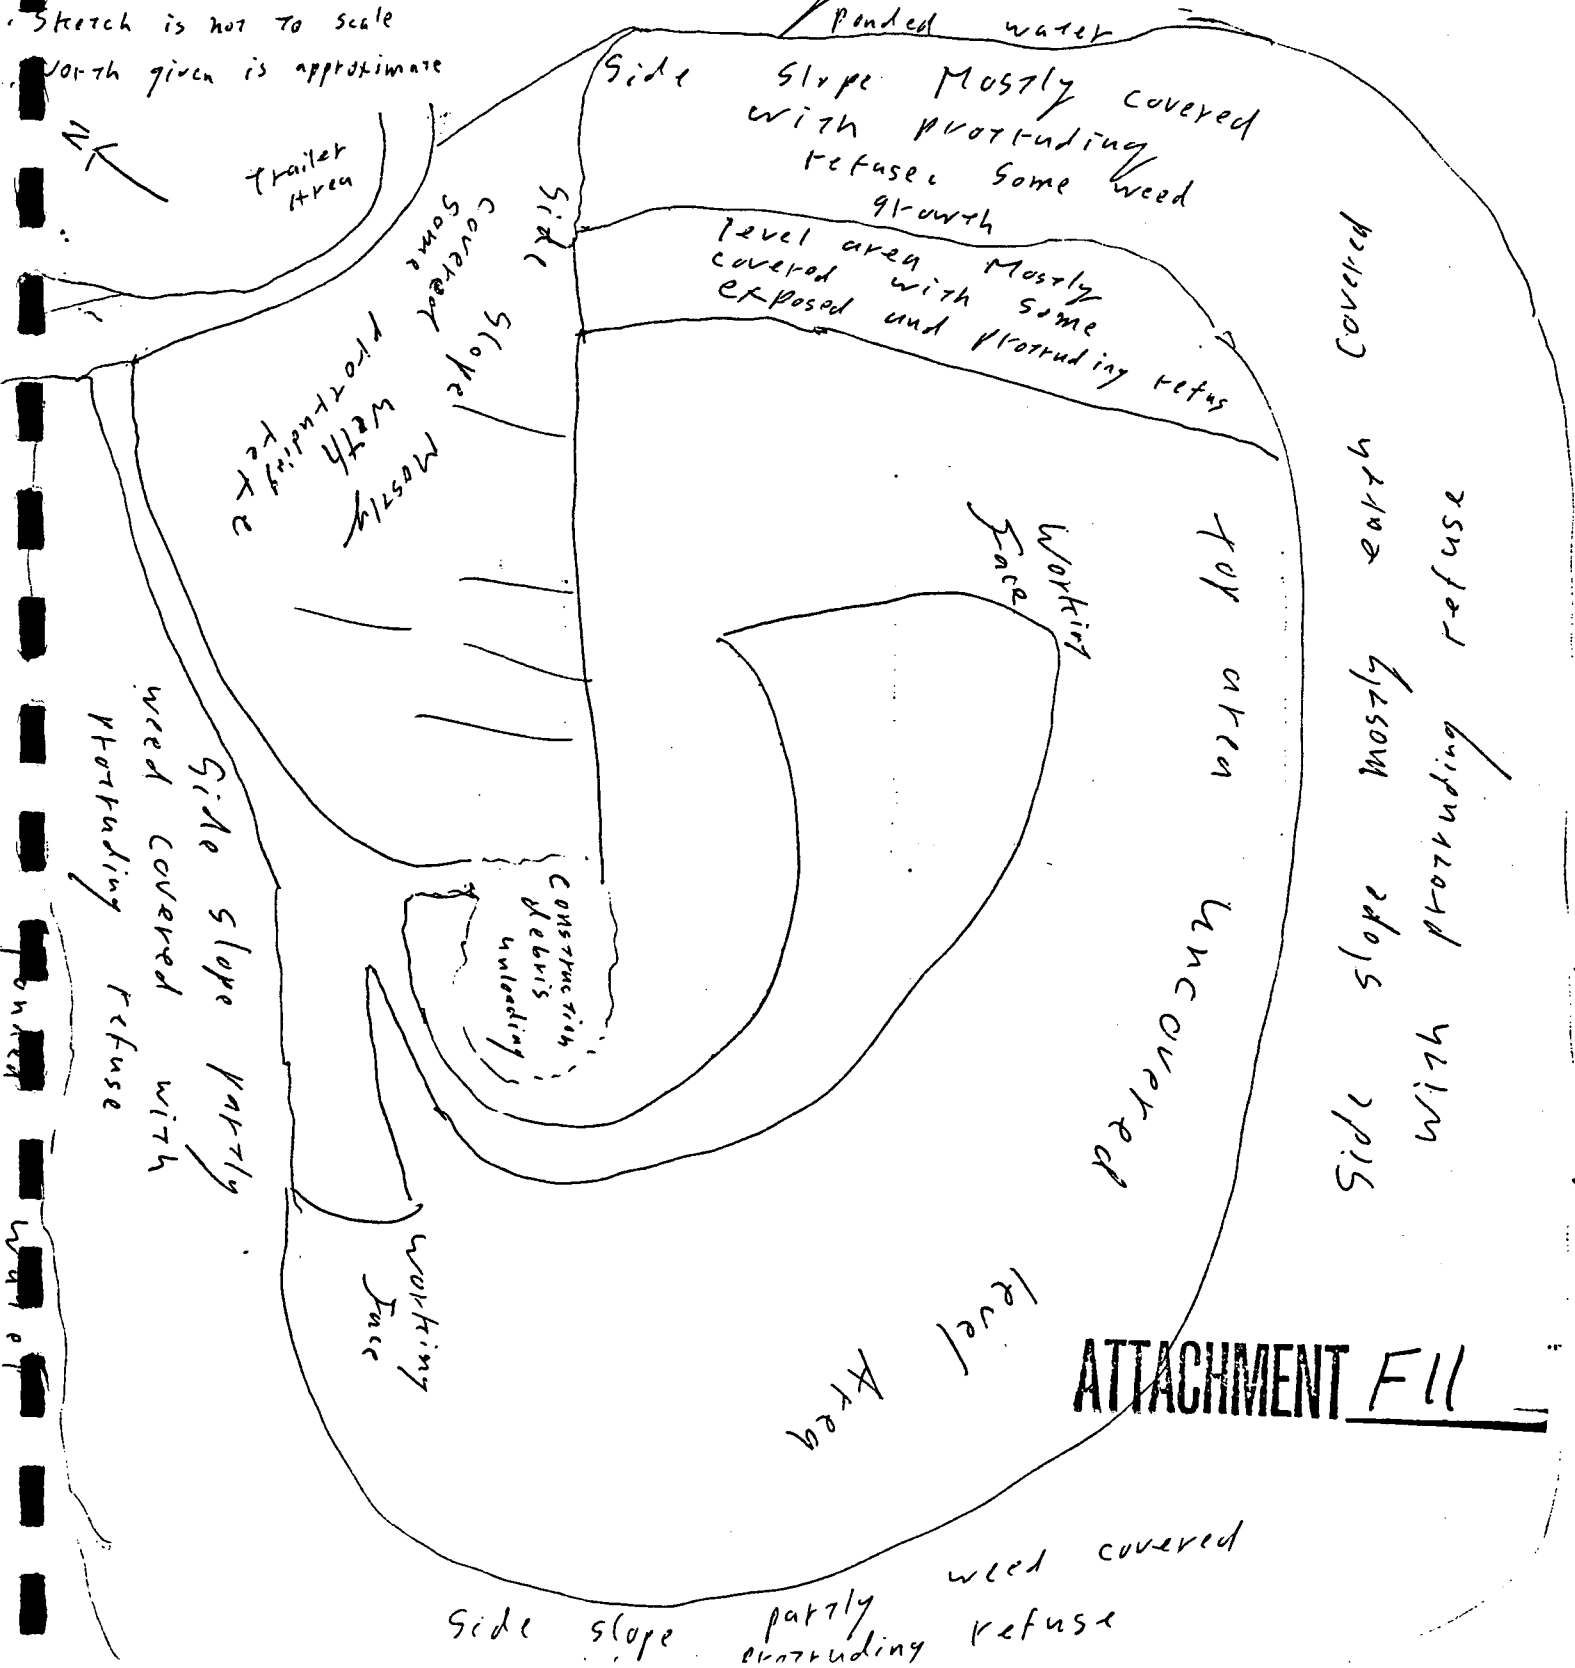 Sketch is not to scale
North given is approximate
N
Trailer
Area
Ponded water
Side Slope Mostly covered
with protruding
refuse. Some weed
growth
level area Mostly
covered with some
exposed and protruding refus
Side Slope Mostly
Covered with
Some protruding
Working
Face
Top area Uncovered
level Area
Side slope mostly earth covered
with protruding refuse
Construction
debris
unloading
Side slope partly
weed covered with
protruding refuse
Ponded water
Working
Face
ATTACHMENT F11
Side slope partly weed covered
protruding refuse